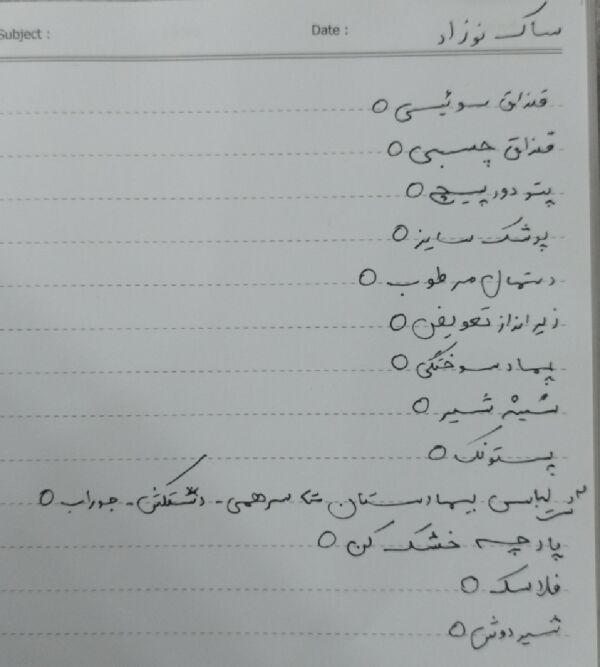 Subject :
Date :
ساک نوزاد
قنداق سوئیسی O
قنداق چسبی O
پتو دورپیچ O
پوشک سایز O
دستمال مرطوب O
زیرانداز تعویض O
پماد سوختگی O
شیشه شیر O
پستونک O
لباس بیمارستان سرهمی - دستکش - جوراب O
پارچه خشک کن O
فلاسک O
شیردوش O